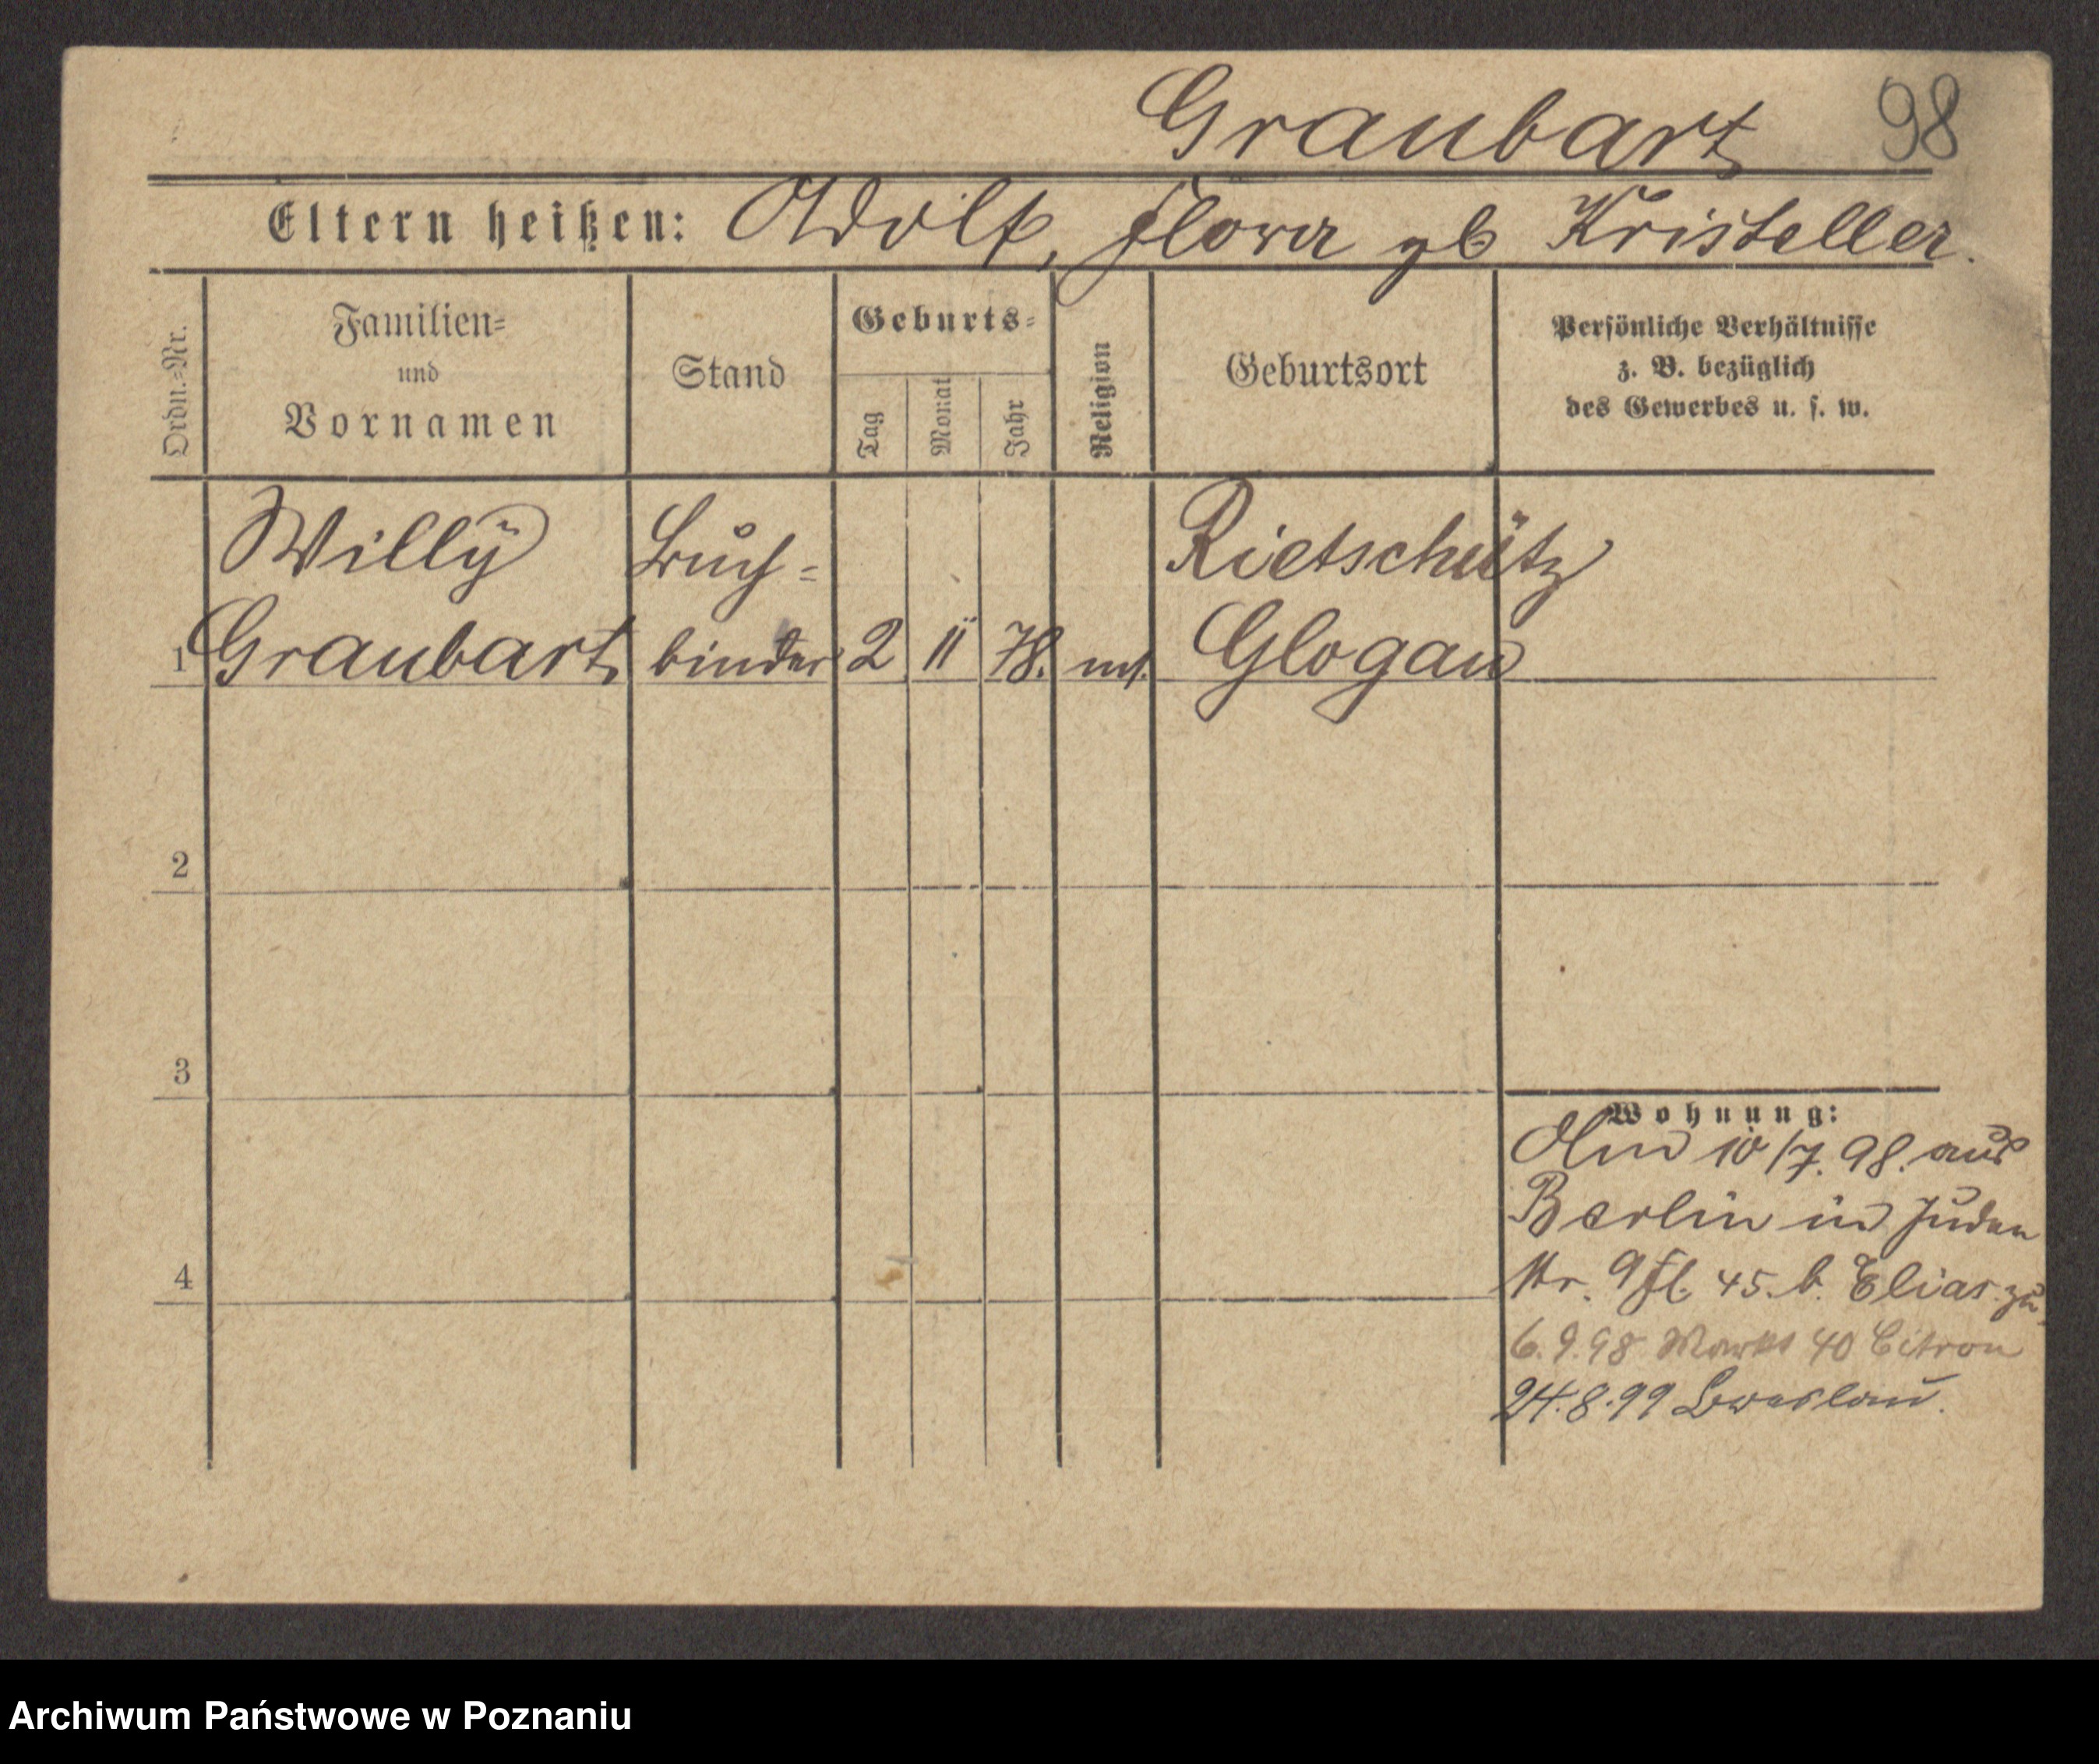 Graubart 98
Eltern heißen: Adolf, Flora gb Kristeller.
Ordn.=Nr.
Familien=
und
Vornamen
Stand
Geburts=
Tag
Monat
Jahr
Religion
Geburtsort
Persönliche Verhältnisse
z. B. bezüglich
des Gewerbes u. s. w.
Willy Buch= Rietschütz
1 Graubart binder 2 11 78. mos. Glogau
2
3
Wohnung:
Am 10/7. 98. aus
Berlin in Juden
4
Str. 9 45. b. Elias zu
6.9.98 Markt 40 Citron
24.8.99 Breslau.
Archiwum Państwowe w Poznaniu